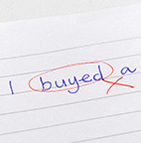 I buyed a